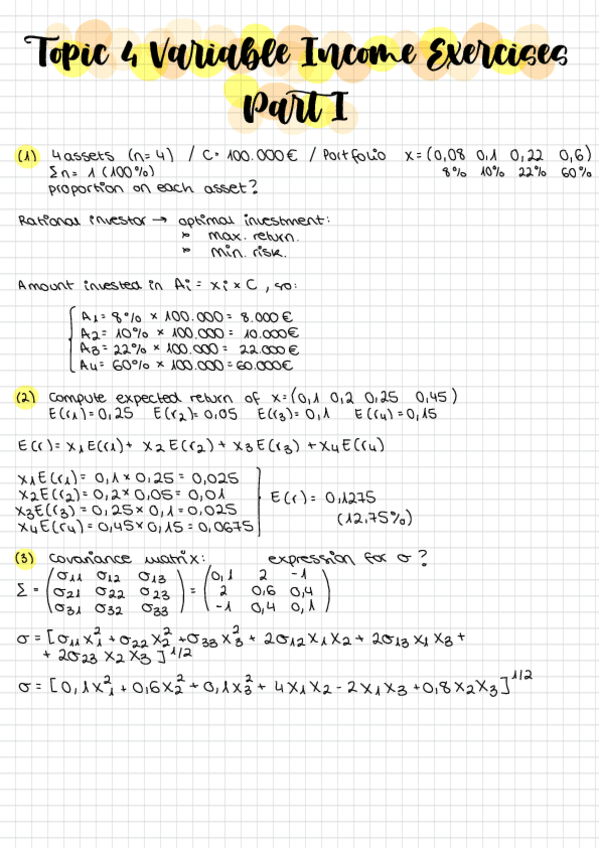 Topic 4 Variable Income Exercises
Part I
(1) 4 assets (n=4) / C= 100.000€ / Portfolio x=(0,08 0,1 0,22 0,6)
Σn= 1 (100%) 8% 10% 22% 60%
proportion on each asset?
Rational investor → optimal investment:
» max. return.
» min. risk.
Amount invested in Ai = xi × C, so:
A1= 8% × 100.000= 8.000€
A2= 10% × 100.000= 10.000€
A3= 22% × 100.000= 22.000€
A4= 60% × 100.000=60.000€
(2) Compute expected return of x=(0,1 0,2 0,25 0,45)
E(r1)=0,25 E(r2)=0,05 E(r3)=0,1 E(r4)=0,15
E(r)= x1E(r1)+ x2E(r2)+ x3E(r3) +x4E(r4)
x1E(r1)= 0,1×0,25 = 0,025
x2E(r2)=0,2×0,05= 0,01
x3E(r3)= 0,25×0,1=0,025
x4E(r4)=0,45×0,15=0,0675
E(r)= 0,1275
(12,75%)
(3) Covariance matrix: expression for σ?
Σ = (σ11 σ12 σ13 = (0,1 2 -1
σ21 σ22 σ23 2 0,6 0,4
σ31 σ32 σ33) -1 0,4 0,1)
σ = [σ11x1² + σ22x2² +σ33x3² + 2σ12x1x2 + 2σ13x1x3 +
+ 2σ23x2x3]^1/2
σ = [0,1x1² + 0,6x2² + 0,1x3² + 4x1x2 - 2x1x3 +0,8x2x3]^1/2